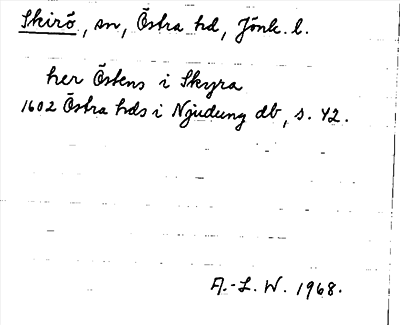 Skirö, sn, Östra hd, Jönk. l.
her Östens i Skyra
1602 Östra hds i Njudung db, s. 42.
A.-L. W. 1968.